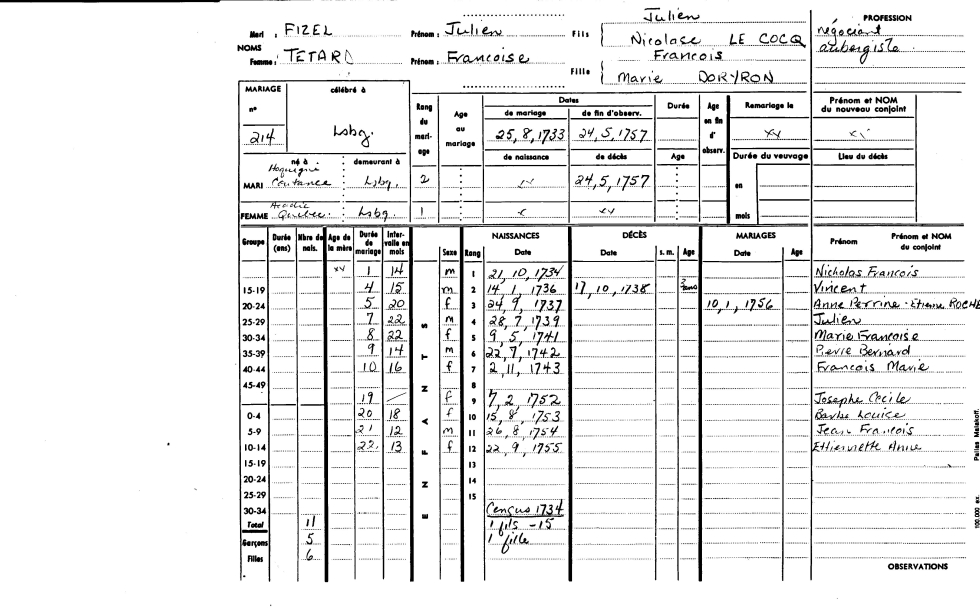 Julien
PROFESSION
Mari : FIZEL Prénom : Julien Fils { Nicolase LE COCQ négociant
NOMS François aubergiste
Femme : TETARD Prénom : Francoise Fille { Marie DORYRON
MARIAGE célébré à Rang du mariage Age au mariage Dates Durée Age en fin d'observ. Remariage le Prénom et NOM du nouveau conjoint
n° de mariage de fin d'observ.
214 Lsbg. 25, 8, 1733 24, 5, 1757 xx xx
né à demeurant à de naissance de décès Age Durée du veuvage Lieu du décès
MARI Coutance Lsbg. 2 24, 5, 1757 en
FEMME Acadie Quebec. Lsbg. 1 mois
Groupe Durée (ans) Nbre de nais. Age de la mère Durée de mariage Intervalle en mois ENFANTS Sexe Rang NAISSANCES Date DÉCÈS Date s. m. Age MARIAGES Date Age Prénom Prénom et NOM du conjoint
xx 1 14 m 1 21, 10, 1734 Nicholas Francois
15-19 4 15 m 2 14, 1, 1736 17, 10, 1738 Vincent
20-24 5 20 f 3 24, 9, 1737 10, 1, 1756 Anne Perrine - Etienne ROCHE
25-29 7 22 m 4 28, 7, 1739 Julien
30-34 8 22 f 5 9, 5, 1741 Marie Françoise
35-39 9 14 m 6 22, 7, 1742 Pierre Bernard
40-44 10 16 f 7 2, 11, 1743 Francois Marie
45-49 8
19 f 9 7, 2, 1752 Josephe Cecile
0-4 20 18 f 10 15, 8, 1753 Barbe Louise
5-9 21 12 m 11 26, 8, 1754 Jean Francois
10-14 22. 13 f 12 22, 9, 1755 Ethienette Anne
15-19 13
20-24 14
25-29 15
30-34 Census 1734
Total 11 1 fils - 15
Garçons 5 1 fille
Filles 6
OBSERVATIONS
100.000 ex.